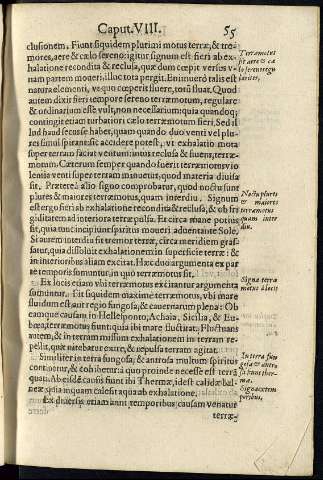 Caput. VIII. 55
clusionem. Fiunt siquidem plurimi motus terræ, & tre-
mores, aere & cælo sereno: igitur signum est fieri ab ex-
halatione recondita & reclusa, quæ dum cœpit versus v-
nam partem moueri, illuc tota pergit. Enimuerò talis est
natura elementi, vt quo cœperit fluere, totũ fluat. Quod
autem dixit fieri tempore sereno terræmotum, regulare
& ordinarium esse vult, non necessarium: quia quandoq;
contingit etiam turbatiori cælo terræmotum fieri. Sed il
lud haud secus se habet, quam quando duo venti vel plu-
res simul spirant: sic accidere potest, vt exhalatio mota
super terram faciat ventum: intus reclusa & fluens, terræ-
motum. Cæterum semper quando fuerit terræmotus vio
lentis venti super terram minuetur, quod materia diuisa
sit. Præterea alio signo comprobatur, quod noctu sunt
plures & maiores terræmotus, quam interdiu. Signum
est ergo fieri ab exhalatione recondita & reclusa, & ob fri
giditatem ad interiora terræ pulsa. Et circa mane potius
sit, quia tunc incipiunt spiritus moueri aduentante Sole.
Si autem interdiu fit terræmotus, circa meridiem græs-
satur, quia dissoluit exhalationem in superficie terræ: &
in interioribus aliam excitat. Hæc duo argumenta ex par
te temporis somuntur, in quo terræmotus sit.
Ex locis etiam vbi terræmotus excitantur argumenta
sumuntur. Fit siquidem maxime terræmotus, vbi mare
fluidum est aut regio fungosa, & cauernarum plena: Ob
eamque causam in Hellesponto, Achaia, Sicilia, & Eu-
bœa, terræmotus sunt: quia ibi mare fluctuat. Fluctuans
autem, & in terram missum exhalationem in terram re-
pellit, quæ nitebatur exire, & repulsa terram agitat.
Similiter in terra fungosa, & antrosa multum spiritus
continetur, & cohibetur: à quo proinde necesse est terrã
quati. Ab eisdẽ causis sunt ibi Thermæ, id est calidæ bal-
neæ: quia inquam calescit aqua ab exhalatione.
Ex diuersis etiam anni temporibus causam venatur
terræ-
Terræmotus
fit aere & cæ
lo sereno regu
lariter,
Noctu plures
& maiores
terræmotus
quam inter
diu.
Signa terræ
motus à locis
In terra fun
gosa & antro
sa sunt ther-
mæ.
Signa ex tem
poribus.